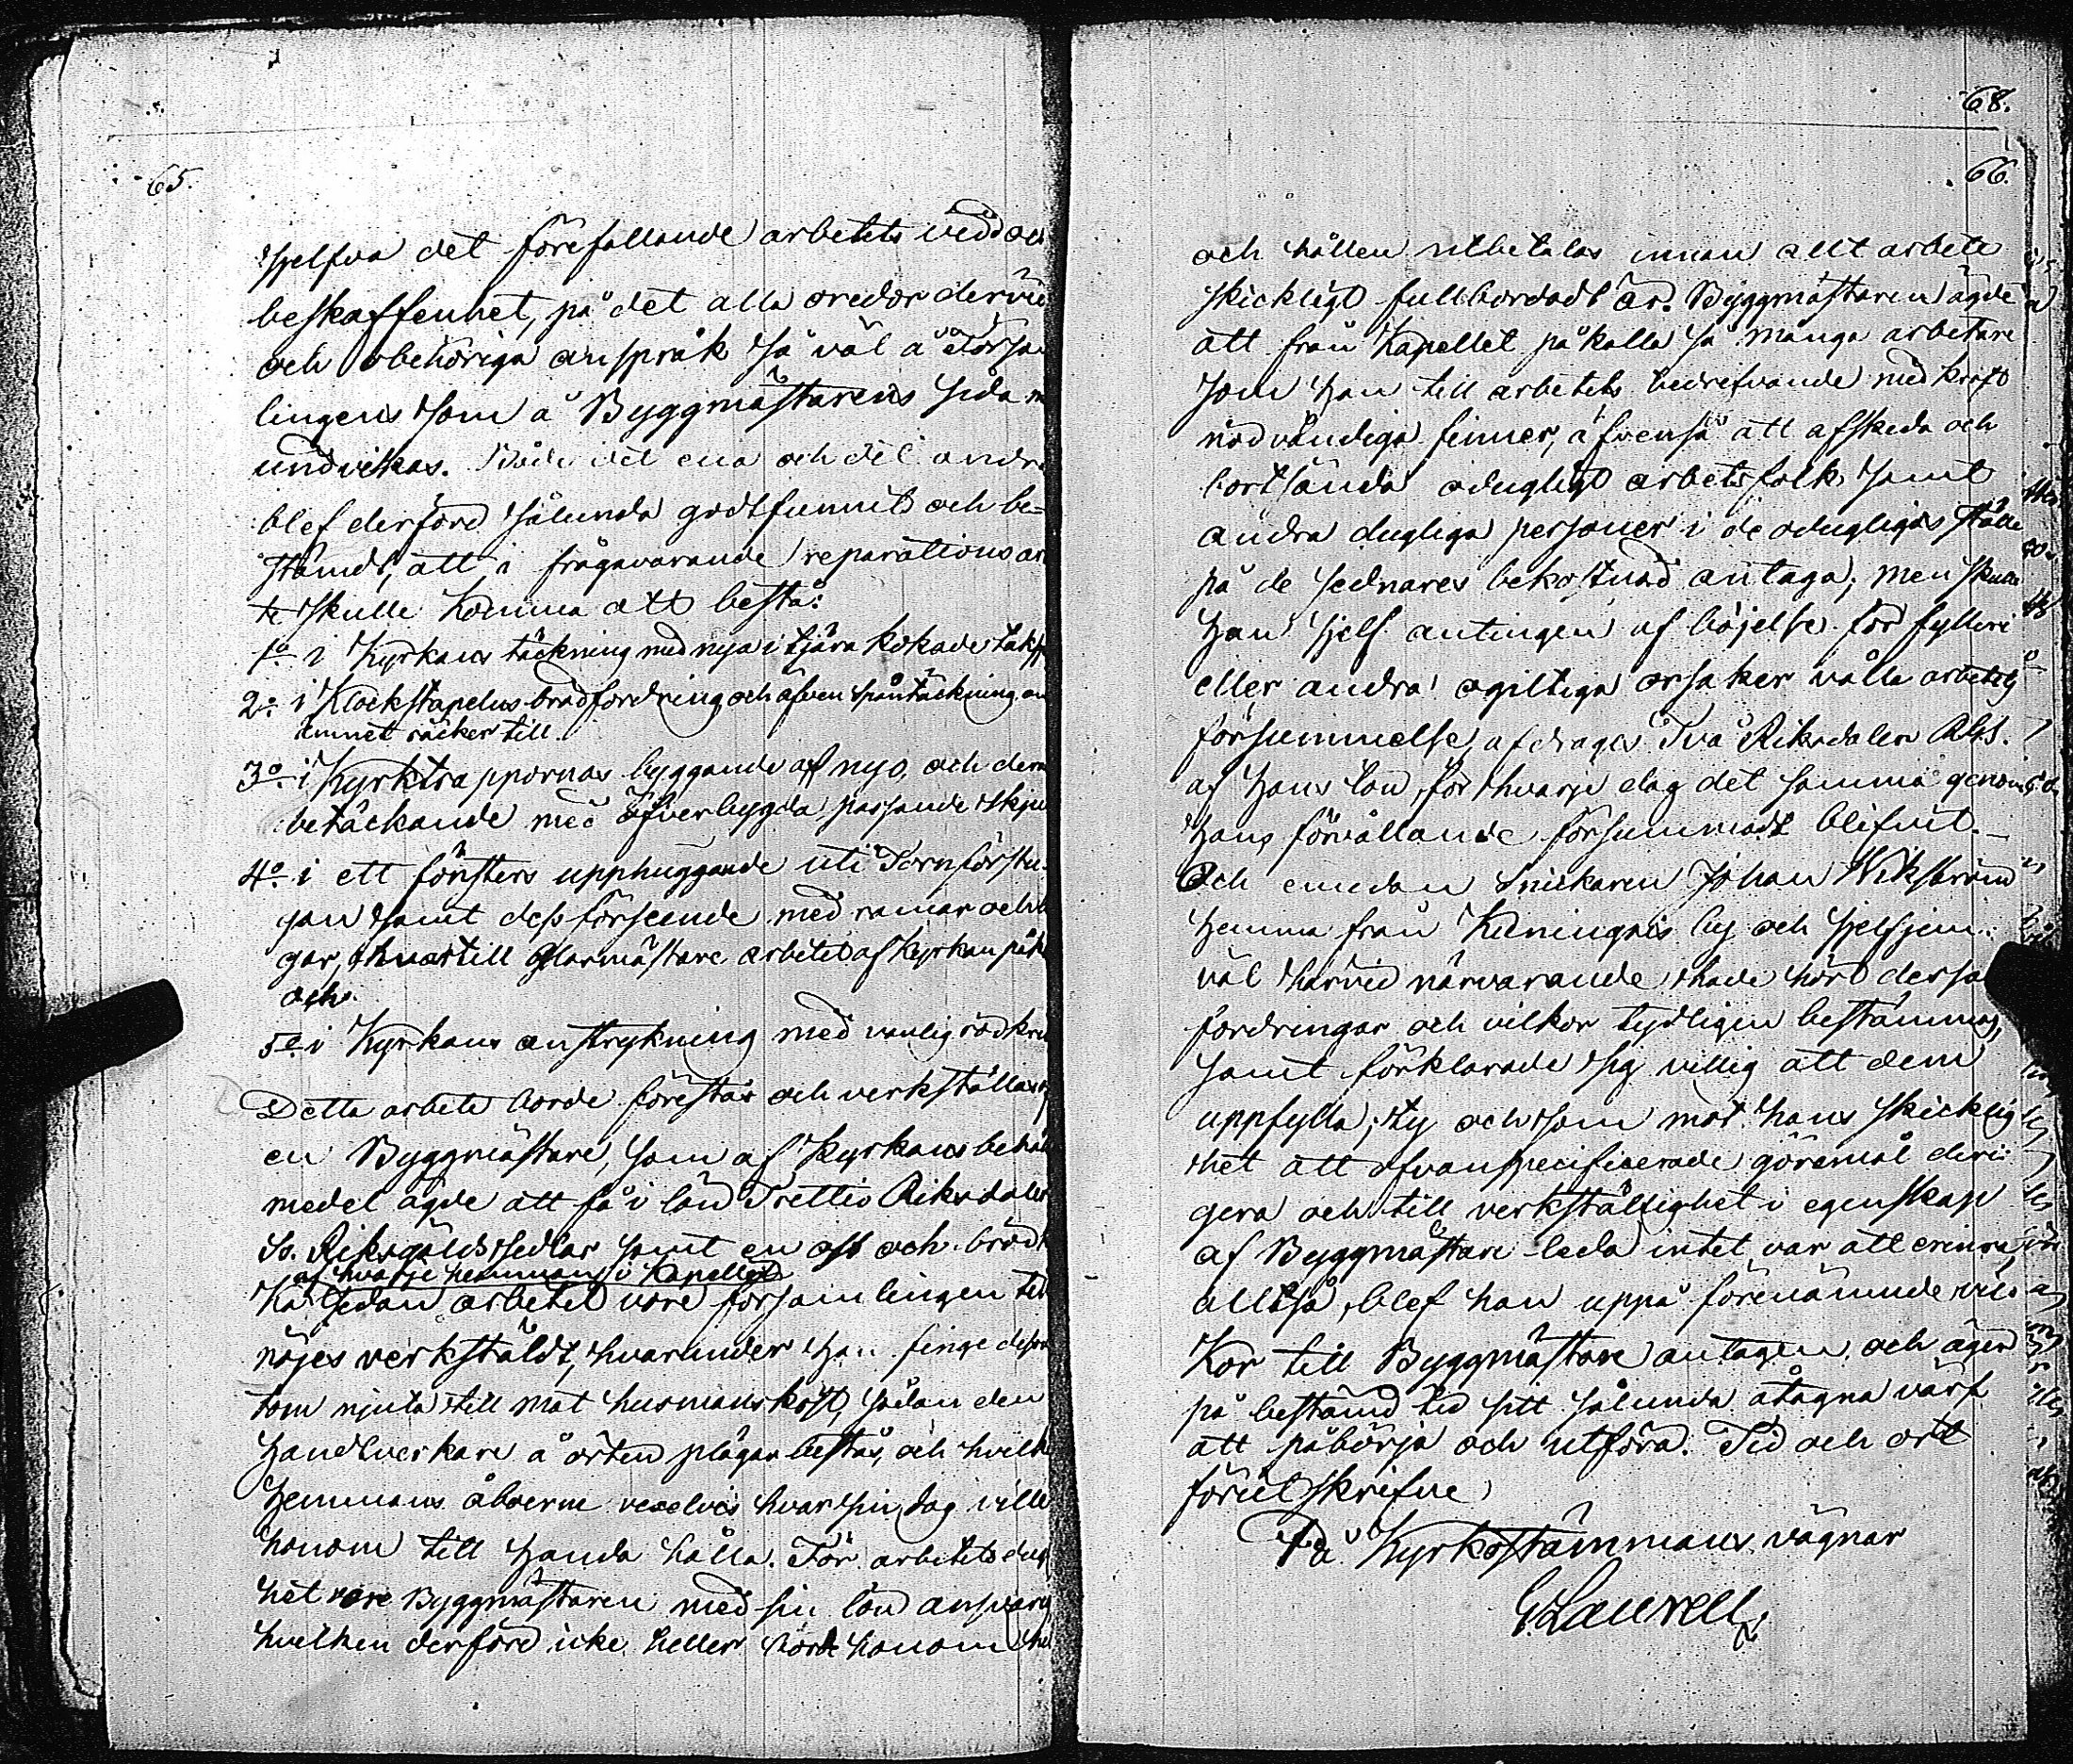 65.
sjelfva det förefallande arbetets vidd och
beskaffenhet, på det alla oredor dervid
och obehöriga anspråk så väl å Försam
lingens som å Byggmästarens sida m
undvikas. Både det ena och det andra
blef derföre sålunda godtfunnit och be=
stämdt, att i frågavarande reparations ar
te skulle komma att bestå:
1o i Kyrkans täckning med nya i tjära kokade täksp
2o i Klockstapelns brädfordring och äfven spåntäckning om
ämnet räcker till.
3o i Kyrktrappornas byggande af nyo, och deras
betäckande med öfverbygda passande skjul
4o i ett fönsters upphuggande uti Tornförstu-
gan samt dess förseende med ramar och
gar, hvartill Glasmästare arbetet af Kyrkan påk
och.
5o i Kyrkans anstrykning med vanlig rödkri
Detta arbete borde förestås och verkställas af
en Byggmästare, som af Kyrkans behåll
medel ägde att få i lön Trettio Riksdaler
Sv. Riksgälds sedlar samt en ost och bröd k
af hvarje hemman i Kapellet
Ka sedan arbetet vore församlingen till
nöjes verkstäldt, hvarunder han finge dessu
tom njuta till mat husmanskost, sådan den
Handtverkare å orten plägar bestås, och hvilke
Hemmans åboerne vexelvis hvar sin dag ville
honom till handa hålla. För arbetets dug
het vore Byggmästaren med sin lön ansvarig
hvilken derföre icke heller borde honom
68.
66.
och hållen utbetalas innan allt arbete
skickligt fullbordadt är. Byggmästaren ägde
att från Kapellet påkalla så många arbetare
som han till arbetets bedrefvande med kraft
nödvändiga finner, äfvenså att afskeda och
bortsända odugligt arbetsfolk samt
andra dugliga personer i de odugligas ställe
på de sednares bekostnad antaga; men skulle
han sjelf antingen af böjelse för fylleri
eller andra ogiltiga orsaker vålla arbetets
försummelse, afdrages Två Riksdaler RGs.
af hans lön för hvarje dag det samma genom
hans förvållande försummadt blifvit.
Och emedan Snickaren Johan Wikström
hemma från Keningnäs by och sjelf jem=
väl härvid närvarande hade hört dessa
fordringar och vilkor tydligen bestämmas,
samt förklarade sig villig att dem
uppfylla; ty och som mot hans skicklig
het att ofvanspecificerade göremål diri=
gera och till verkställighet i egenskap
af Byggmästare leda intet var att erinra,
alltså blef han uppå förenämnde vill
kor till Byggmästare antagen och äger
på bestämd tid sitt sålunda åtagna värf
att påbörja och utföra. Tid och ort
förutskrifne
På Kyrkostämmans vägnar
G. Laurell